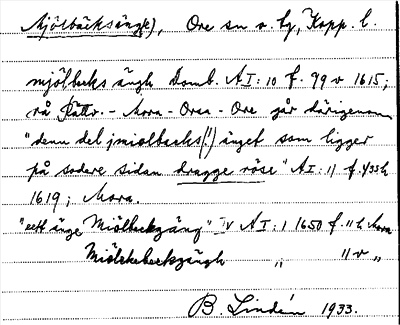 Mjölbäcksäng(e), Ore sn o. tg, Kopp. l.
mjölbecks ängh Domb. AI:10 f. 99 v 1615;
rå Rättv.- Mora - Orsa - Ore går därigenom
"denn del jmiolbacks(!) änget som ligger
på sodere sidan dragge röse" AI:11 f. 433 h
1619; Mora.
"ett änge Miölbeckgäng" IV AI:1 1650 f. 11 h Mora
Miölckebeckgängh " 11 v "
B. Lindén 1933.